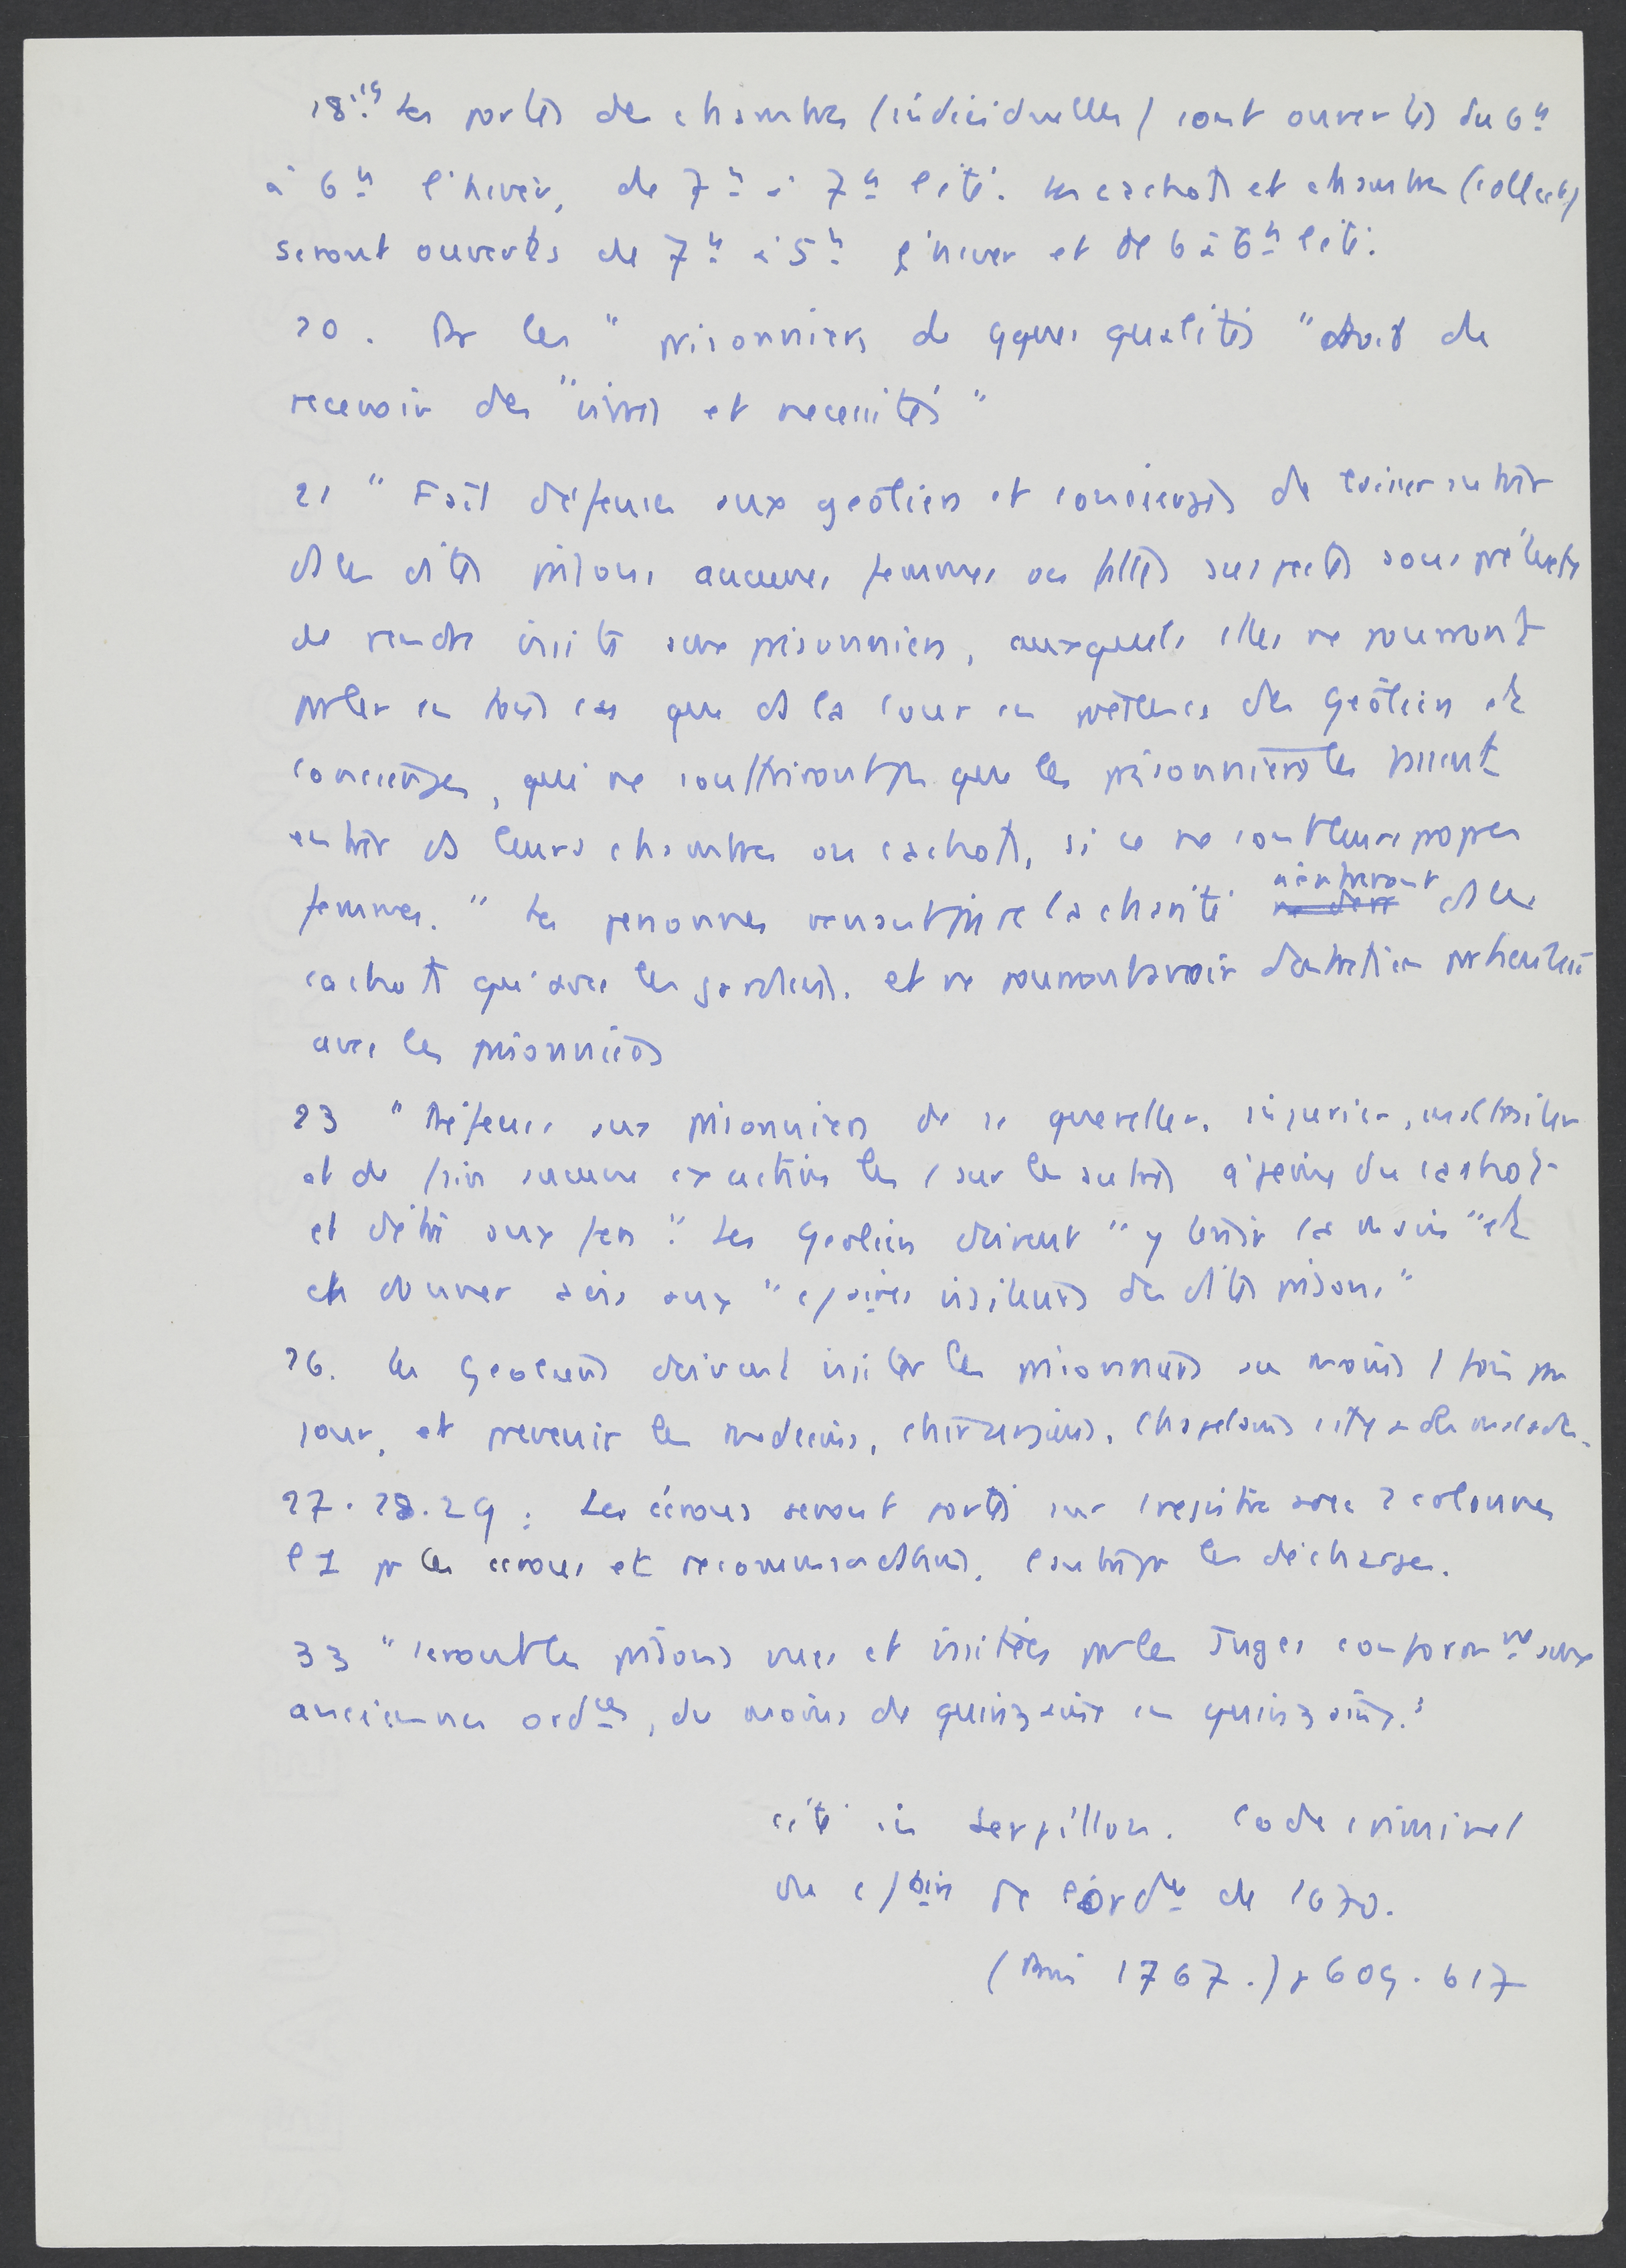 18.19 Les portes des chambres (individuelles) sont ouvertes du 6h
à 6h l'hiver, de 7h à 7h l'été. Les cachots et chambres (collect)
seront ouverts de 7h à 5h l'hiver et de 6 à 6h l'été.
20. Pr les "prisonniers de qques qualités" droit de
recevoir des "vivres et necessités"
21 "Fait défense aux geôliers et concierges de laisser entrer
ds les dites prisons aucunes femmes ou filles suspectes sous prétexte
de rendre visite aux prisonniers, auxquels elles ne pourront
parler en tous cas que ds la cour en présence des Geôliers et
concierges, qui ne souffriront pas que les prisonniers les fassent
entrer ds leurs chambres ou cachots, si ce ne sont leurs propres
femmes." Les personnes venant faire la charité n'entreront ds les
cachots qu'avec les gardiens. et ne pourront avoir d'entretien particulier
avec les prisonniers
23 "Défense aux prisonniers de se quereller, injurier, maltraiter
et de faire aucune exaction les 1 sur les autres à peine du cachot
et d'être aux fers". Les Geoliers doivent "y tenir la main" et
en donner avis aux "c/aires visiteurs des dites prisons"
26. Les Geoliers doivent visiter les prisonniers au moins 1 fois par
jour, et prevenir les medecins, chirurgiens, chapelains s'il y a des malades.
27.28.29: Les écrous seront portés sur 1 registre avec 2 colonnes
l'1 pr les écrous et recommandations, l'autre pr les décharges.
33 "seront les prisons vues et visitées par les Juges conformnt aux
anciennes ordces, du moins de quinzaine en quinzaine."
cité in Serpillon. Code criminel
ou c/aire de l'ordce de 1670.
(1767.) p 609.617